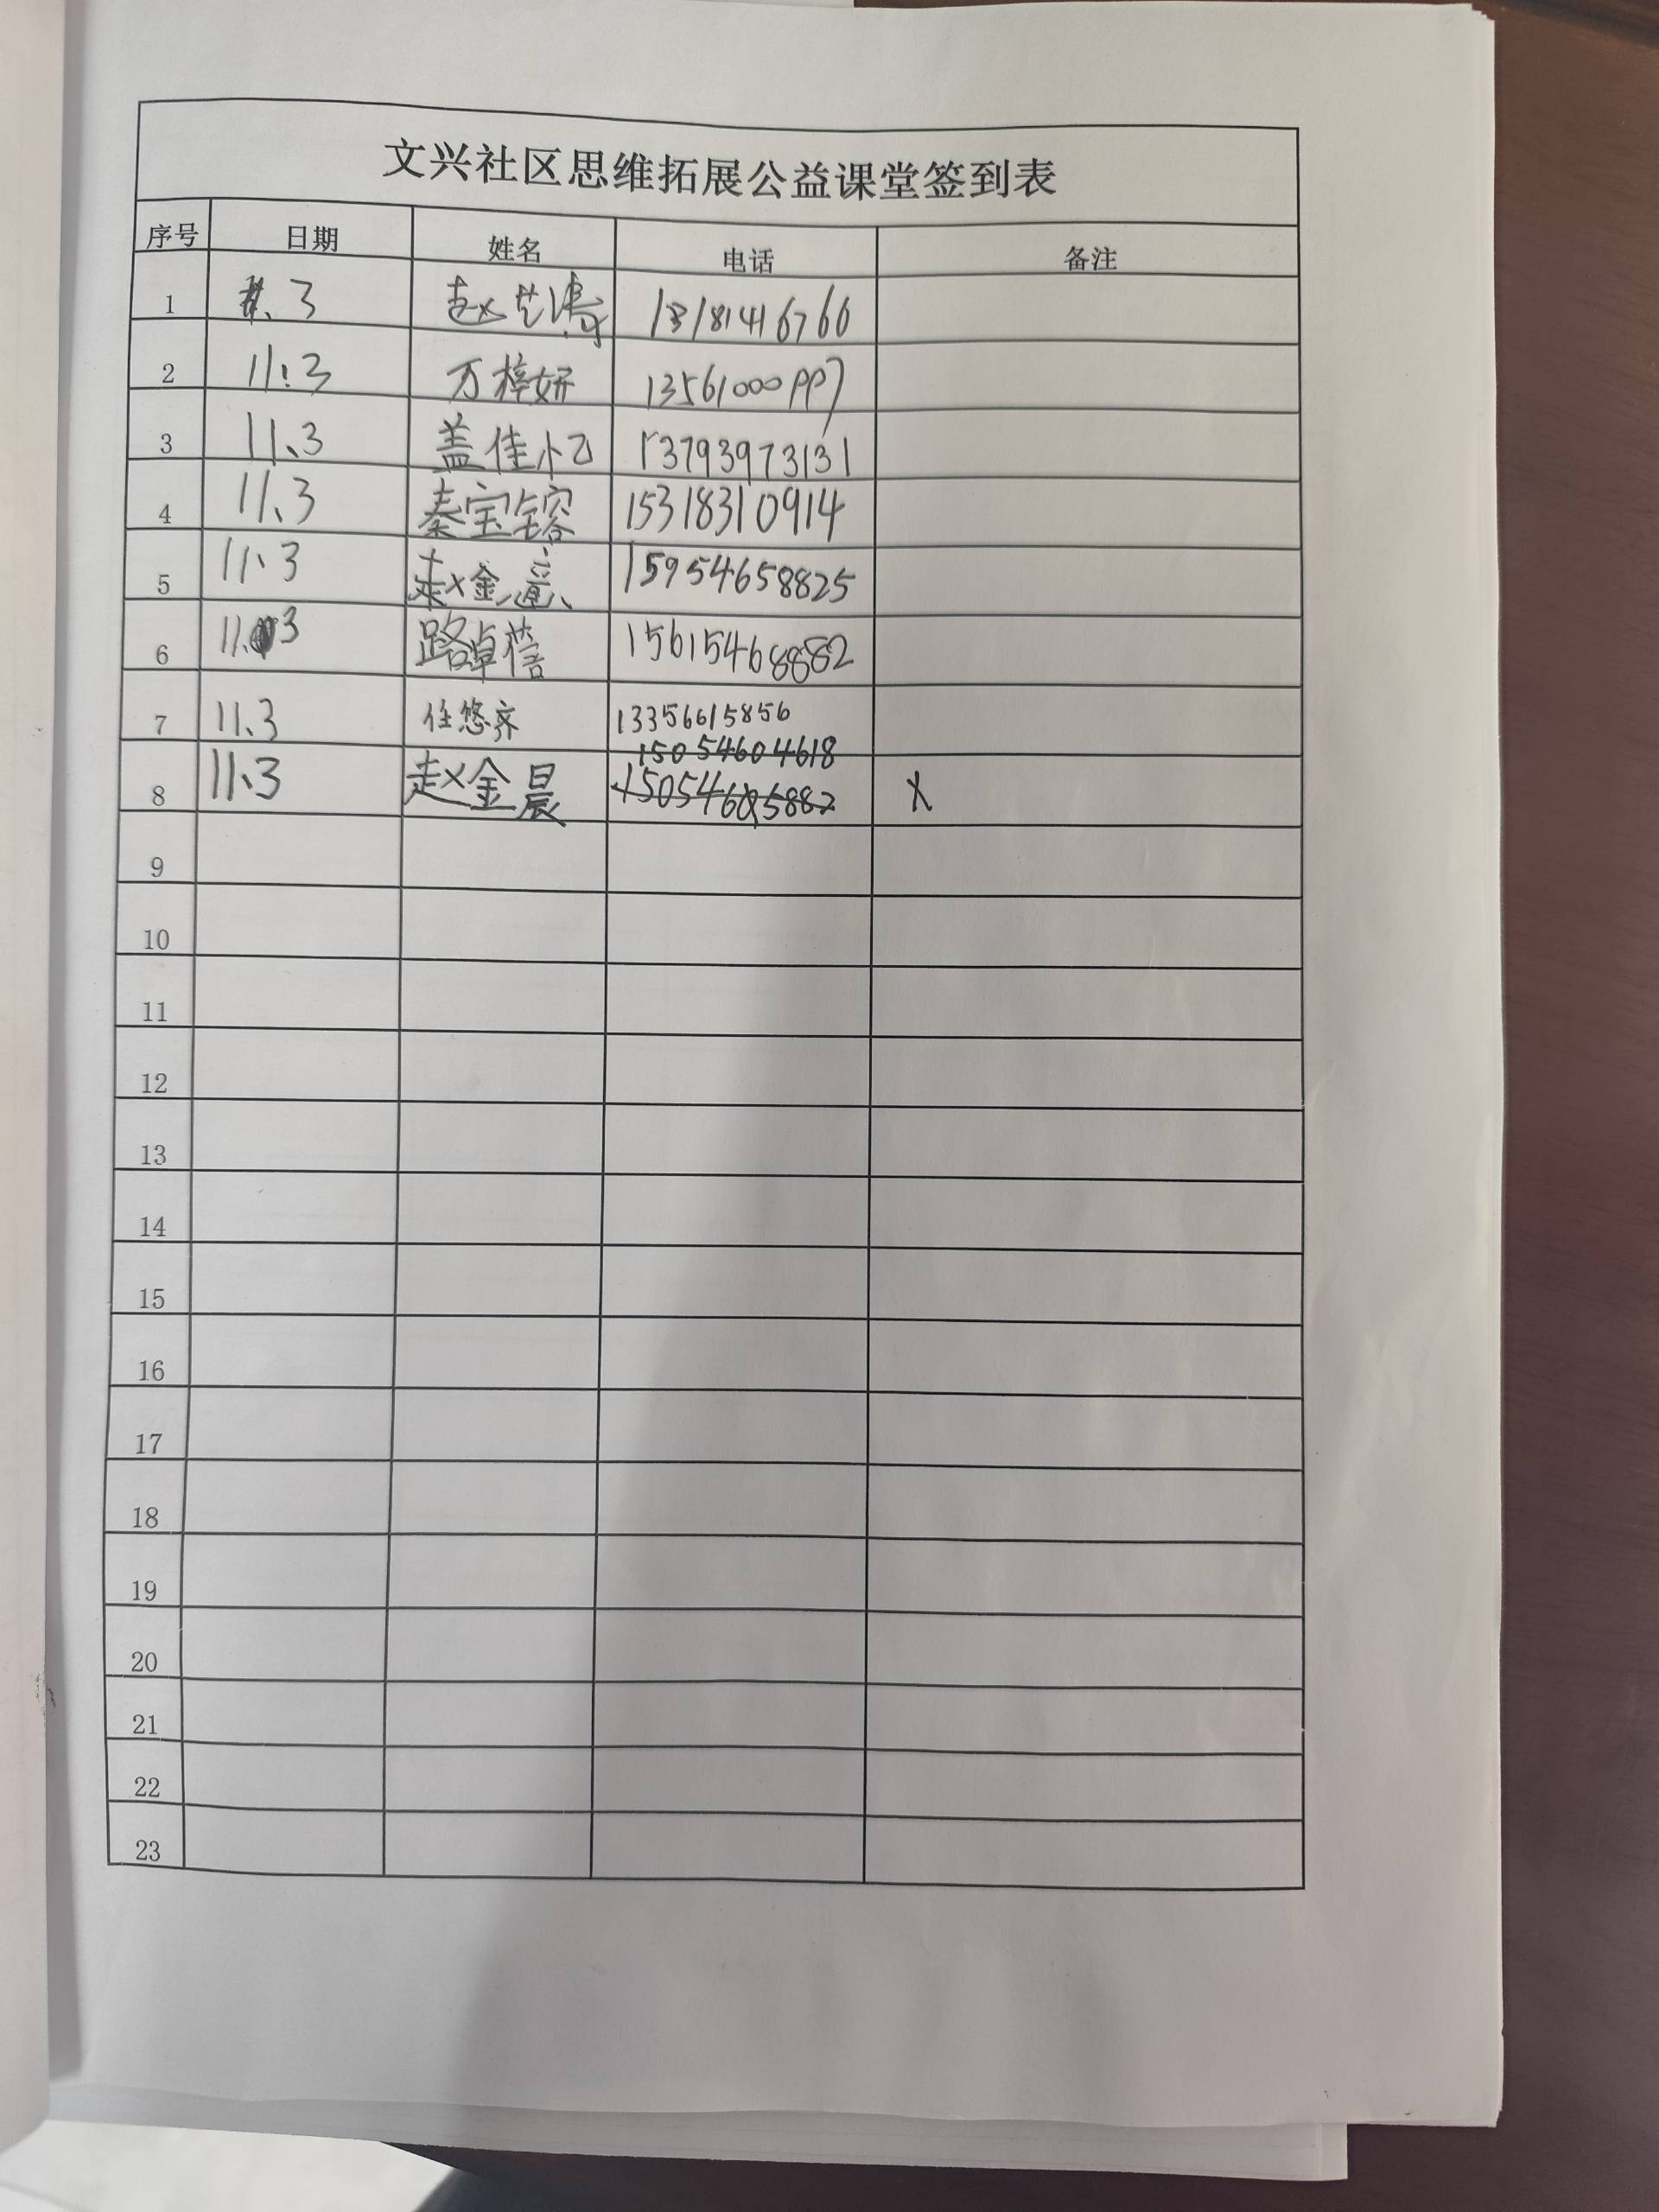 文兴社区思维拓展公益课堂签到表
序号 日期 姓名 电话 备注
1 11.3 赵艺涛 13181416766
2 11.3 万梓妍 13561000997
3 11、3 盖佳忆 13793973131
4 11、3 秦宝镕 15318310914
5 11、3 赵金意 15954658825
6 11.3 路卓蓓 15615468882
7 11.3 任悠齐 13356615856
15054604618
8 11、3 赵金晨 X
9
10
11
12
13
14
15
16
17
18
19
20
21
22
23